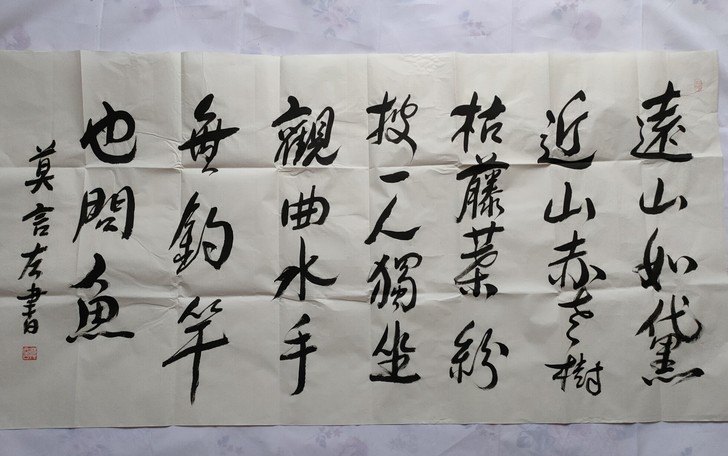 遠山如黛
近山赤老樹
枯藤葉紛
披一人獨坐
觀曲水手
無釣竿
也問魚
莫言左書